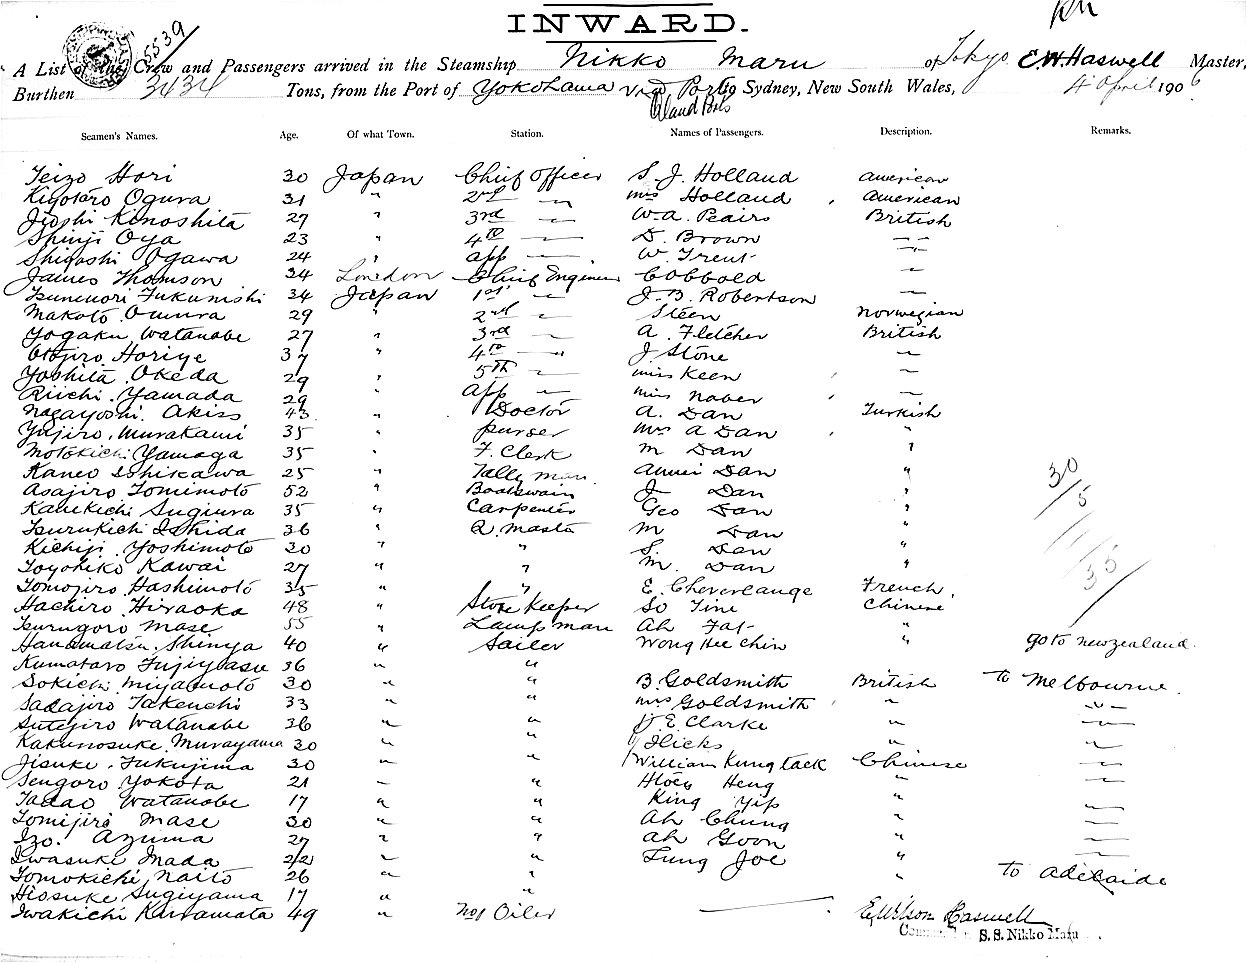 INWARD.
5539
A List of the Crew and Passengers arrived in the Steamship Nikko Maru of Tokyo E.W. Haswell Master,
Burthen 3434 Tons, from the Port of Yokohama via Ports to Sydney, New South Wales, 4 April 1906
Island Ports
Seamen's Names. Age. Of what Town. Station. Names of Passengers. Description. Remarks.
Teizo Hori 30 Japan Chief Officer S. J. Holland American
Kiyotaro Ogura 31 " 2nd — " Mrs Holland American
Jioshi Kinoshita 27 " 3rd — W. A. Peairs British
Shinji Oya 23 " 4th — D. Brown —
Shigashi Ogawa 24 " App — W. Trent —
James Thomson 34 London Chief Engineer Cobbold —
Tsunenori Fukunishi 34 Japan 1st — J. B. Robertson —
Makoto Omura 29 " 2nd — Steen Norwegian
Yogaku Watanabe 27 " 3rd — A. Fletcher British
Otojiro Horiye 37 " 4th — J. Stone —
Yoshita Okeda 29 " 5th — Miss Keen —
Riichi Yamada 29 " App — Miss Naber —
Nagayoshi Akiss 43 " Doctor A. Dan Turkish
Yujiro Murakami 35 " Purser Mrs A Dan "
Motokichi Yamaga 35 " F. Clerk M Dan "
Kaneo Ishikawa 25 " Tally man Annei Dan "
Asajiro Tomimoto 52 " Boatswain J Dan "
Kanekichi Sugiura 35 " Carpenter Geo Dan "
Tsurukichi Ishida 36 " Q. Master M Dan "
Kichiji Yoshimoto 30 " " S. Dan "
Toyohiko Kawai 27 " " M. Dan
Tomojiro Hashimoto 35 " " E. Cheverlange French
Hachiro Hiraoka 48 " Store Keeper So Tine Chinese
Tsurugoro Mase 55 " Lamp man Ah Fat "
Hanamatsu Shinya 40 " Sailer Wong Hee Chin " go to New Zealand
Kumataro Fujiyasu 36 " "
Sokichi Miyamoto 30 " " B. Goldsmith British to Melbourne
Sadajiro Takeuchi 33 " " Mrs Goldsmith " — " —
Sutejiro Watanabe 36 " " J E. Clarke " —
Kakunosuke Murayama 30 " " Hicks " —
Jisuke Fukujima 30 " " William Kung tack Chinese —
Sengoro Yokota 21 " " Hoey Heng " —
Tadao Watanabe 17 " " King Yip " —
Tomijiro Mase 30 " " Ah Chung " —
Izo Azuma 27 " " Ah Goon " —
Iwasuke Inada 22 " " Lung Joe " —
Tomokichi Naito 26 " " " to Adelaide
Hiosuke Sugiyama 17 " "
Iwakichi Kawamata 49 " No1 Oiler —
30/5
35
E. Wilson Haswell
S. S. Nikko Maru